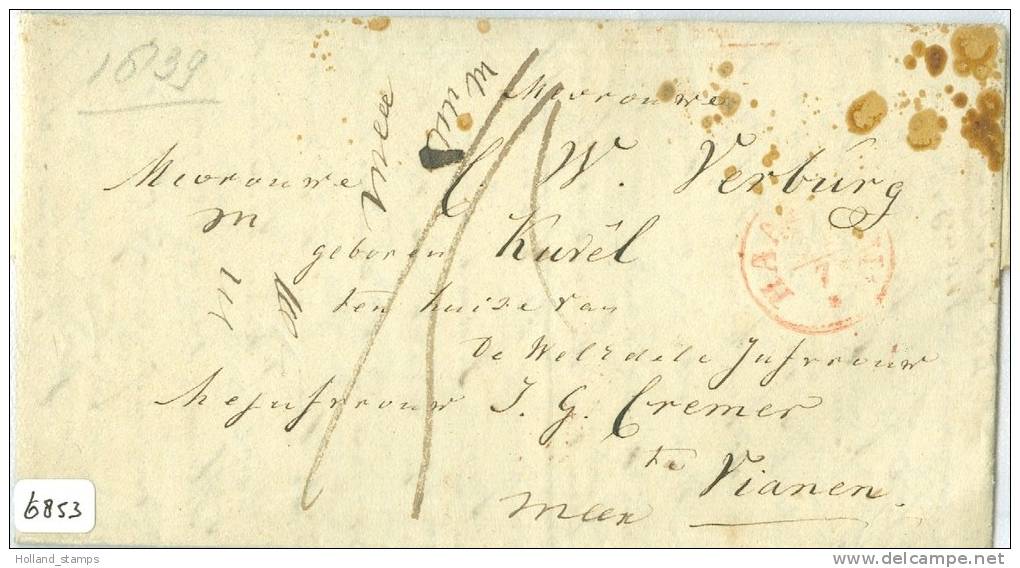 1839
Mevrouwe
Mevrouwe C. W. Verburg
m
geboren Kurêl
ten huize van
De Weledele Jufvrouw
Mejufvrouw J. G. Cremer
te Vianen
meer
mee
m
HAA
7
6853
Holland_stamps
www.delcampe.net